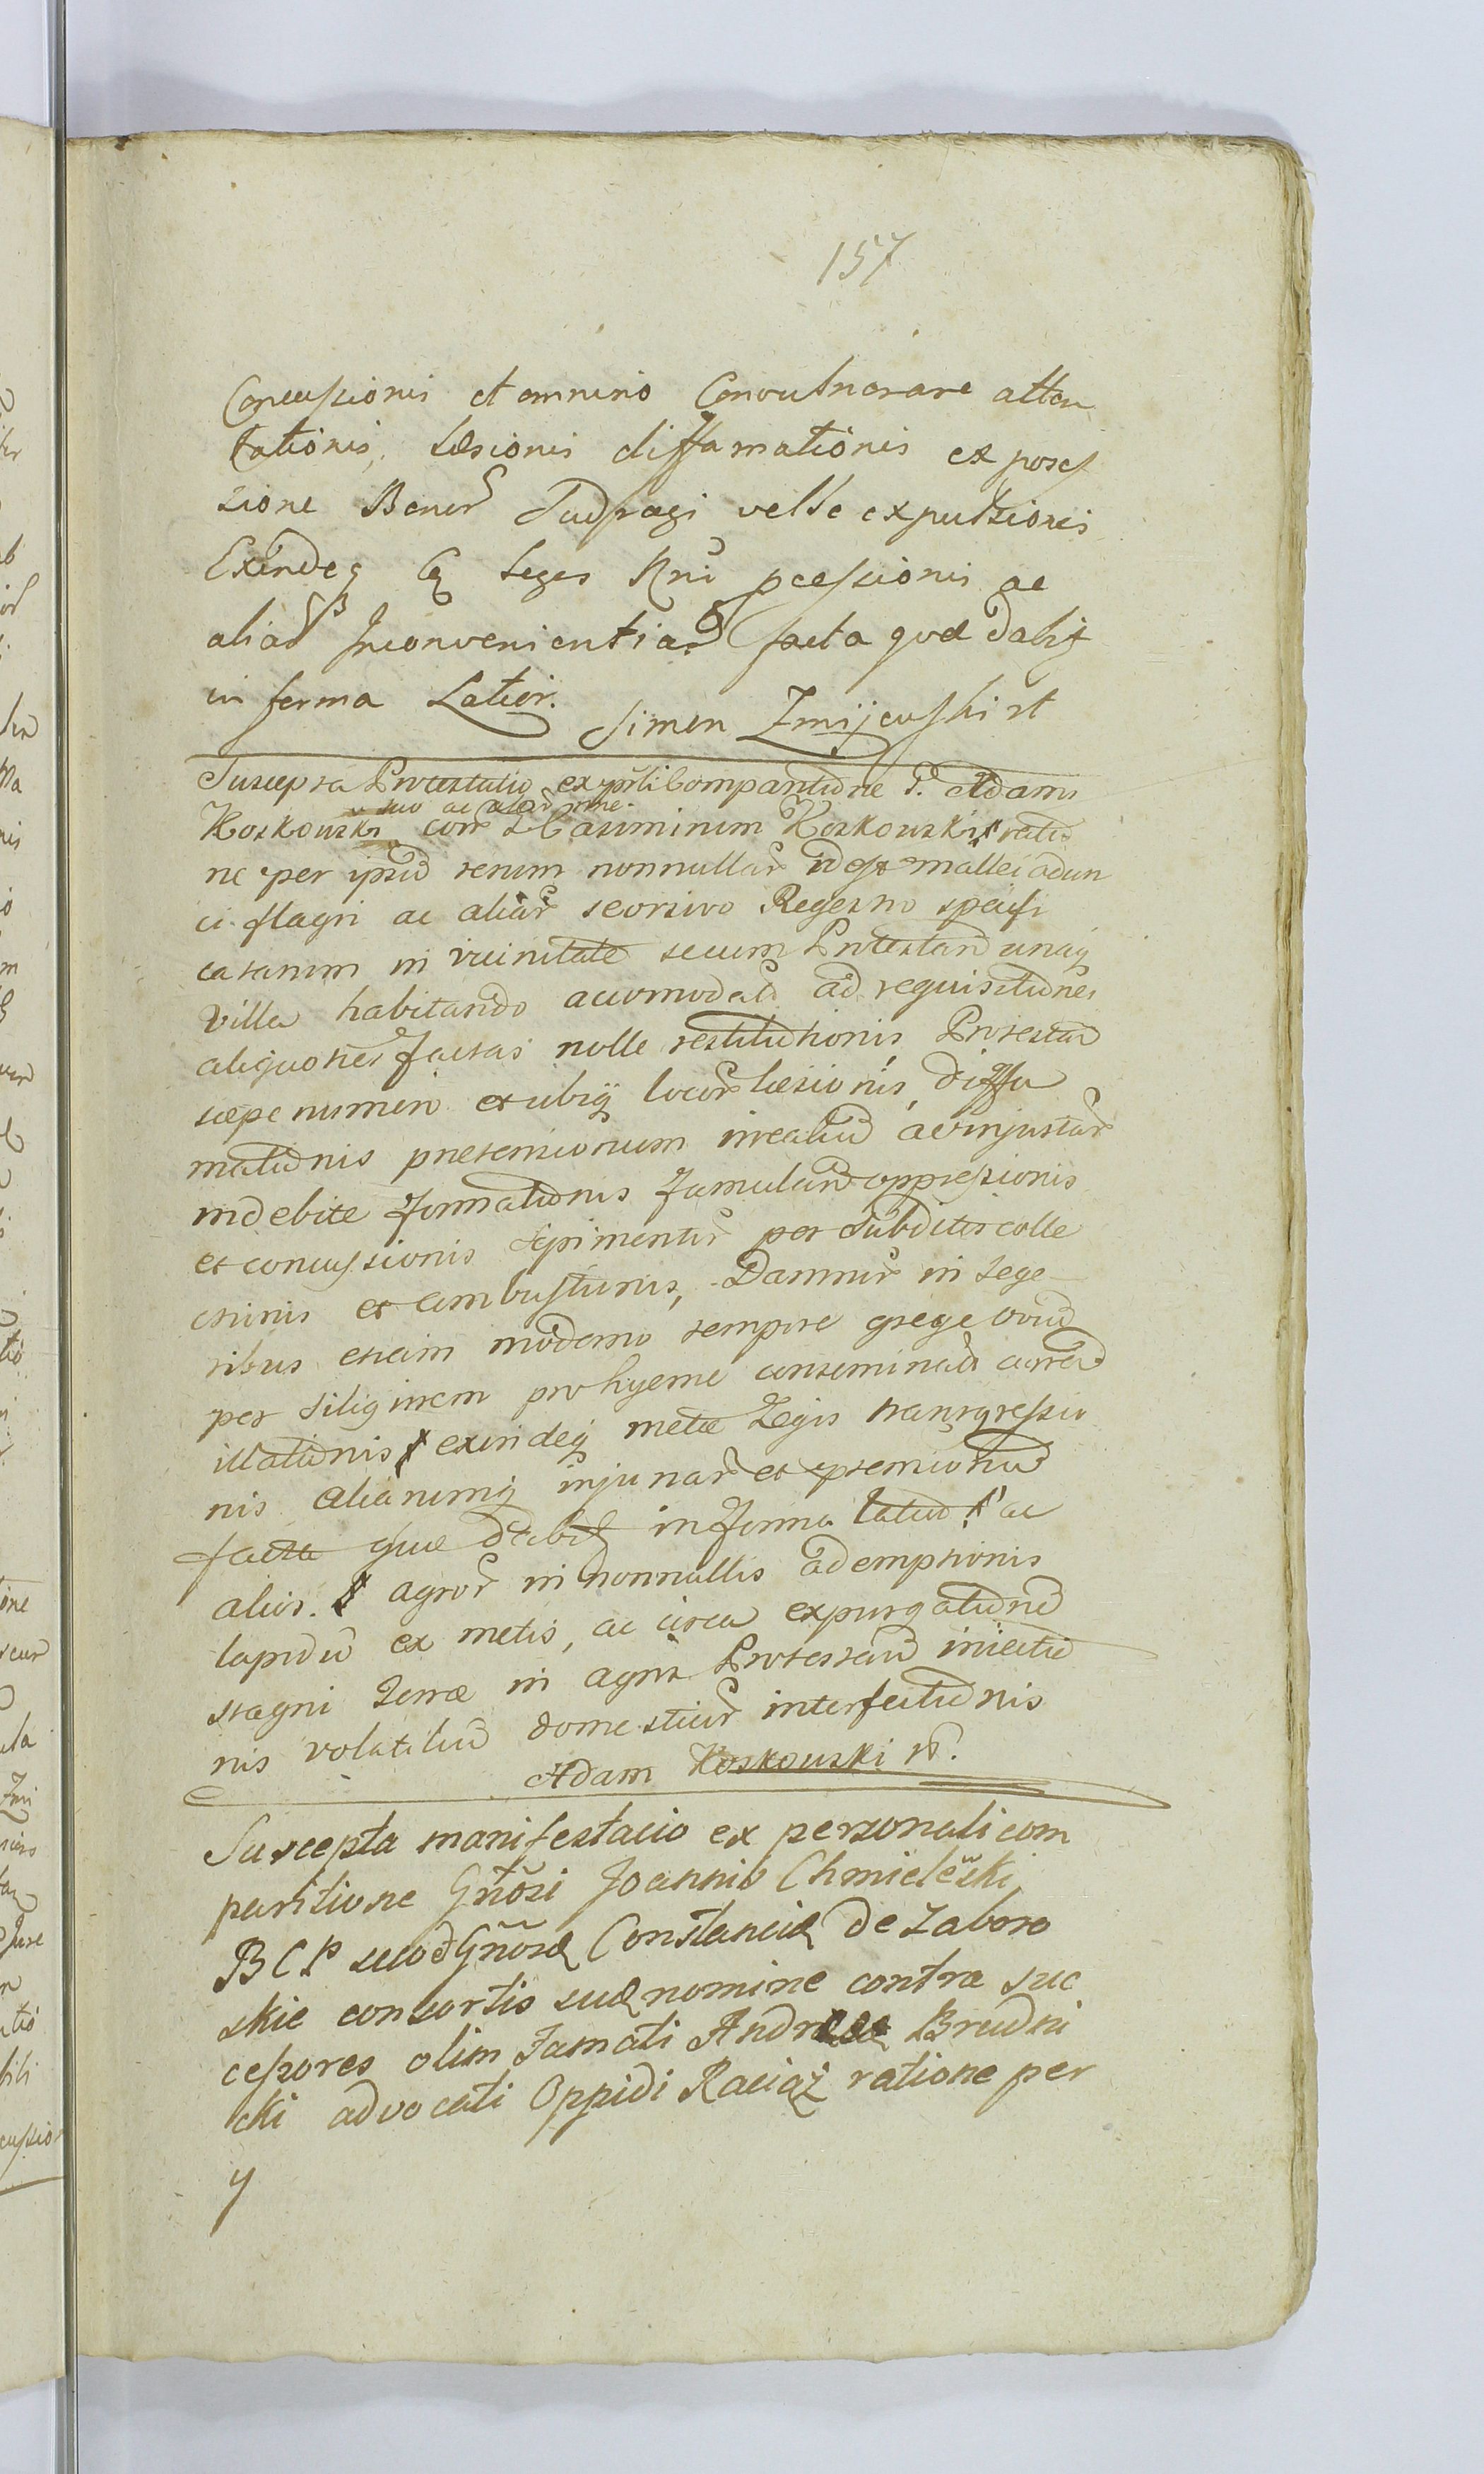 157
Concussionis et omnino Convulnerare atten
tationis, Læsionis diffamationis ex poses
sione Bonor velle expulsionis
Exindeq Leges Rni pcessionis ac
aliar Inconvenientiar facta quæ dabit
in forma Latior.
Simon Zmijewski rt
Suscepta Protestatio ex psli Comparitione G. Adami
suo ac alior nne.
Koskowski con Casimirum Koskowski ratio
ne per ipsũ rerum nonnullar id est mallei adun
ci flagri ac aliar seorsivo Regestro specifi
catarum in vicinitate secum Protestan unaq
Villa habitando accomodat ad requisitiones
aliquoties factas nolle restitutionis Protestan
sæpe numero et ubiq locor læsionis, diffa
mationis prætensionum irrealiũ ac injustar
indebite formationis famulan oppressionis
et concussionis Sepimentor per Subditos colle
ctionis et combustionis, Damnor in sege
tibus etiam moderno tempore grege oviũ
per siliginem pro hyeme conseminat curren
illationis exindeq metæ Legis transgressio
nis aliarumq injuriar et prætensionũ
facta quæ dabit in forma latiori ac
alior. agror in nonnullis ademptionis
lapidũ ex metis, ac circa expurgationẽ
stagni terræ in agros Protestan iniectio
nis volatiliũ domesticor interfectionis
Adam Koskowski rt.
Suscepta manifestacio ex personali com
paritione Gñosi Joannis Chmieleski
B C P suo et Gñosæ Constanciæ de Zaboro
skie consortis suæ nomine contra suc
cessores olim Famati Andreæ Brudni
cki advocati Oppidi Raciąż ratione per
y